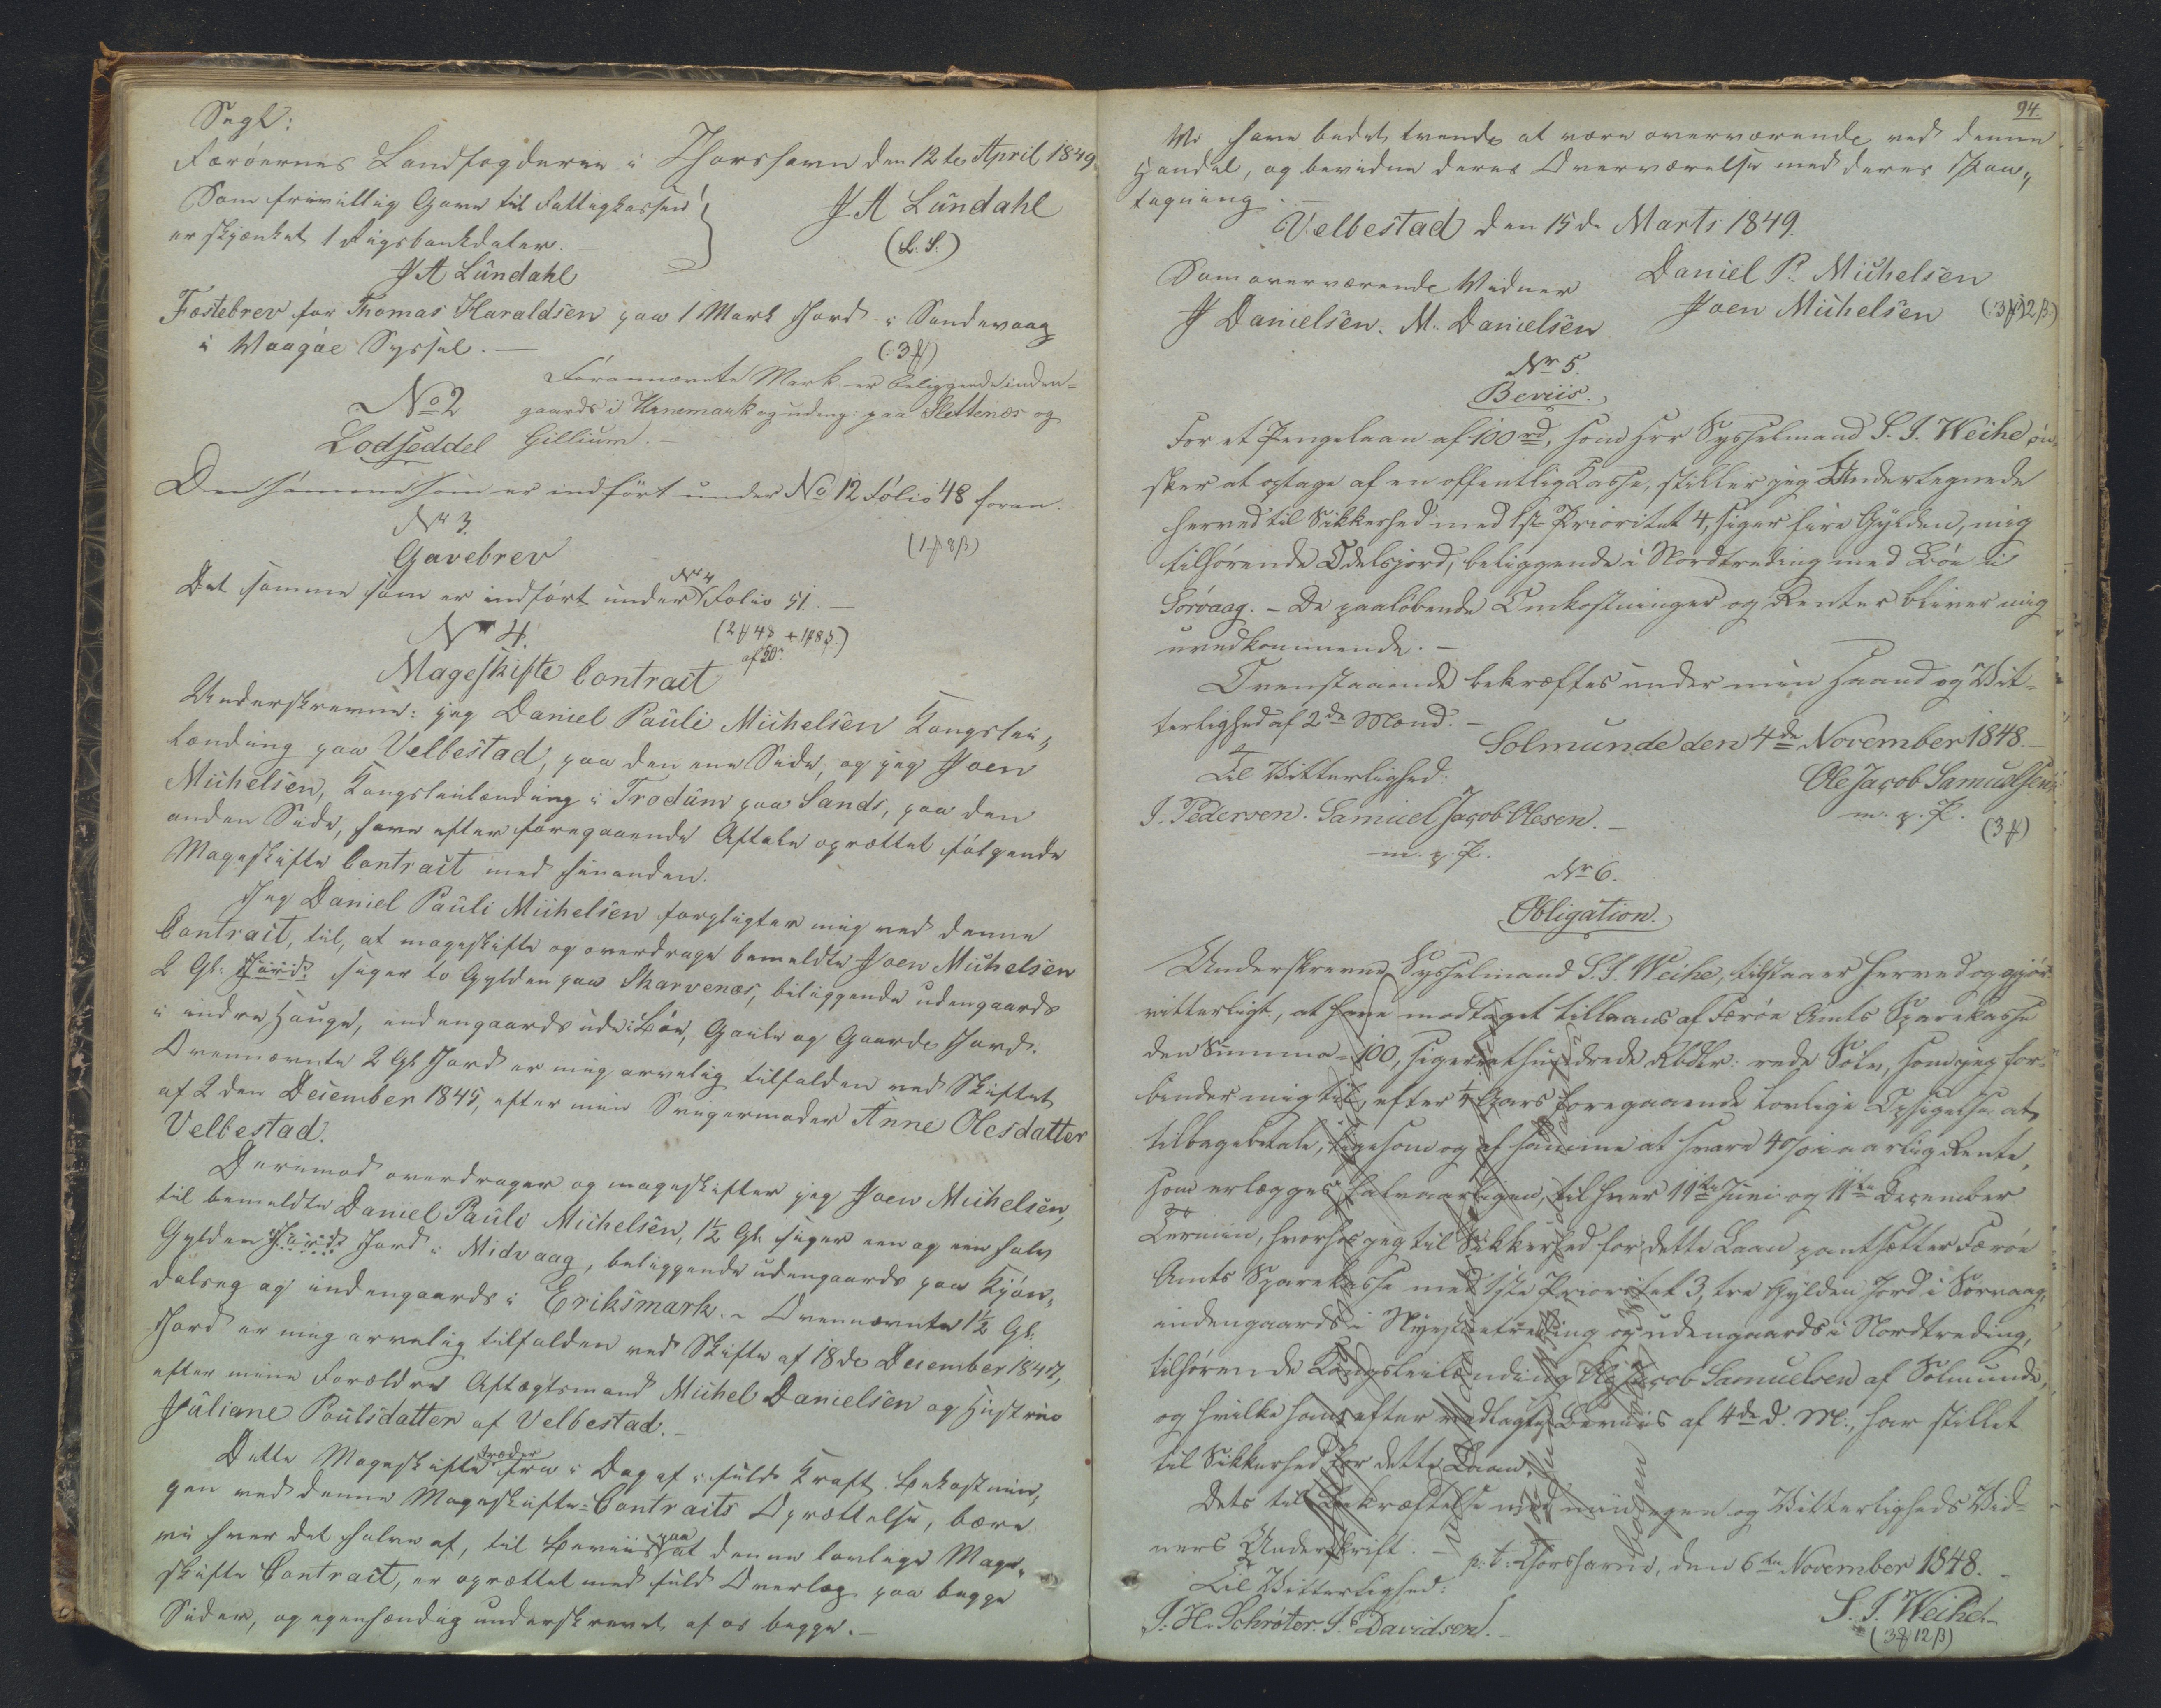 Segl:
Færöernes Landfogderie i Thorshavn den 12te April 1849.
Som frivillig Gave til Fattigkassen
er skjænket 1 Rigsbankdaler. —
J A Lündahl
(L. S.)
J A Lündahl
Fæstebrev for Thomas Haraldsen paa 1 Mark Jord i Sandevaag
i Waagöe Syssel. —
(:3 )
No 2
Forannævnte Mark er beliggende inden=
gaards i Urnemark og udeng: paa Slettenæs og
Gillium. —
Lodseddel
Den samme som er indfört under No 12 Folio 48 foran.
Nr 3.
Gavebrev
(1 8 ß)
Det samme som er indfört under Nr 4 Folio 51. —
Nr 4.
(2 48 + 1 8 ß.)
af 50
Mageskifte Contract
Underskrevne: jeg Daniel Pauli Michelsen Kongslei„
lænding paa Velbestad, paa den ene Side, og jeg Joen
Michelsen, Kongsleilænding i Trodüm paa Sandö, paa den
anden Side, have efter foregaaende Aftale oprættet fölgende
Mageskifte Contract med hinanden.
Jeg Daniel Pauli Michelsen forpligter mig ved denne
Contract, til, at mageskifte og overdrage bemeldte Joen Michelsen
2 Gl: Jord: siger to Gylden paa Skarvenæs, beliggende udengaards
i indre Hauge, indengaards ude i Böe, Geile og Gaards Jord.
Ovennævnte 2 Gl Jord er mig arvelig tilfalden ved Skiftet
af 2 den December 1845, efter min Svigermoder Anne Olesdatter
Velbestad.
Derimod overdrager og mageskifter jeg Joen Michelsen,
til bemeldte Daniel Pauli Michelsen, 1½ Gl. siger een og een halv
Gylden Jord: Jord i Midvaag, beliggende udengaards paa Kjön„
dalseg og indengaards i Eriksmark. ~ Ovennævnte 1½ Gl.
Jord er mig arvelig tilfalden ved Skifte af 18de December 1847,
efter mine Forældre Aftægtsmand Michel Danielsen og Hustrue
Juliane Poulsdatter af Velbestad. —
Dette Mageskifte træder fra i Dag af i fuld Kraft. Bekostnin„
gen ved denne Mageskifte=Contracts Oprættelse, bære
vi hver det halve af, til Beviis paa at denne lovlige Mage„
skifte Contract, er oprættet med fuld Overlæg paa begge
Sider, og egenhændig underskrevet af os begge. —
94.
Vi have bedet tvende at være overværende ved denne
Handel, og bevidne deres Overværelse med deres Paa„
tegning. —
Velbestad den 15de Marts 1849.
Som overværende Vidner
Daniel P. Michelsen
J Danielsen. M. Danielsen
Joen Michelsen
(:3 12 ß:)
Nr 5.
Beviis.
For et Pengelaan af 100 rd, som Hr Sysselmand S. J. Weihe øn„
sker at optage af en offentlig Kasse, stiller jeg Undertegnede
herved til Sikkerhed med 1ste Prioritet 4, siger fire Gylden, mig
tilhørende Odelsjord, beliggende i Nordtreding med Böe i
Sörvaag. – De paaløbende Omkostninger og Renter bliver mig
uvedkommende. —
Ovenstaaende bekræftes under min Haand og Vit=
terlighed af 2de Mænd. —
Solmunde den 4de November 1848. —
Til Vitterlighed:
Ole Jacob Samuelsen
m. p. P.
J. Pedersen. Samuel Jacob Olesen. —
m. p. P.
(3 )
Nr 6.
Obligation.
Underskrevne Sysselmand S. J. Weihe, tilstaaer herved og gjør
vitterligt, at have modtaget tillaans af Færöe Amts Sparekasse
den Summa = 100, siger et hundrede Rbdlr: rede Sølv, som jeg for=
binder mig til, efter ¼ Aars foregaaende lovlige Opsigelse at
tilbagebetale, ligesom og af samme at svare 4 % i aarlig Rente,
som erlægges halvaarligen, til hver 11te Juni og 11te December
Termin, hvorhos jeg til Sikkerhed for dette Laan pantsætter Færöe
Amts Sparekasse med 1ste Prioritet 3, tre Gylden Jord i Sørvaag,
indengaards i og udengaards i Nordtreding,
tilhørende Kongsleilænding Ole Jacob Samuelsen af Solmunde,
og hvilke han efter vedlagte Beviis af 4de d. M., har stillet
til Sikkerhed for dette Laan.
Dets til Bekræftelse med min egen og Vitterligheds Vid=
ners Underskrift. —
p. t. Thorshavn, den 6te November 1848. —
Til Vitterlighed:
J. H. Schrøter. J. Davidsen. —
S. J. Weihe. —
(3 12 ß)